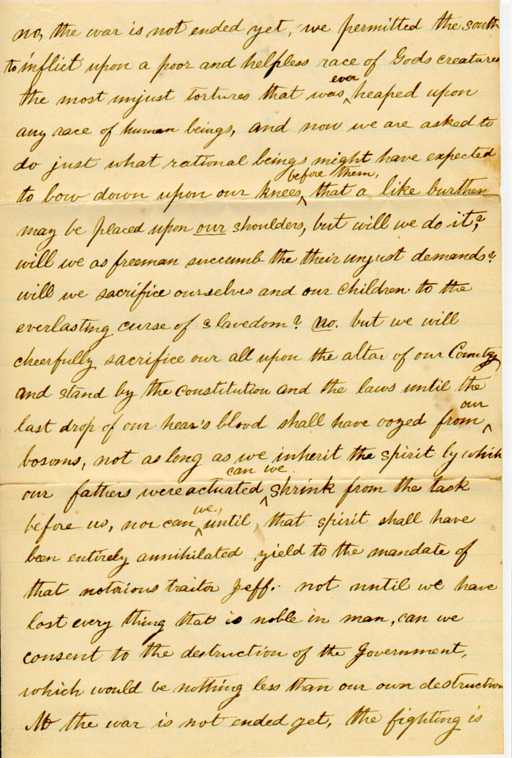 no, the war is not ended yet, we permitted the south
to inflict upon a poor and helpless race of Gods creatures
the most unjust tortures that was ever heaped upon
any race of human beings, and now we are asked to
do just what rational beings might have expected
to bow down upon our knees before them, that a like burthen
may be placed upon our shoulders, but will we do it?
will we as freeman succumb the their unjust demands?
will we sacrifice ourselves and our children to the
everlasting curse of slavedom? no. but we will
cheerfully sacrifice our all upon the altar of our Country
and stand by the constitution and the laws until the
last drop of our hear's blood shall have oozed from our
bosoms, not as long as we inherit the spirit by which
our fathers were actuated can we shrink from the task
before us, nor can we, until, that spirit shall have
been entirely annihilated yield to the mandate of
that notorious traitor Jeff. not until we have
lost every thing that is noble in man, can we
consent to the destruction of the Government,
which would be nothing less than our own destruction
the war is not ended yet, the fighting is